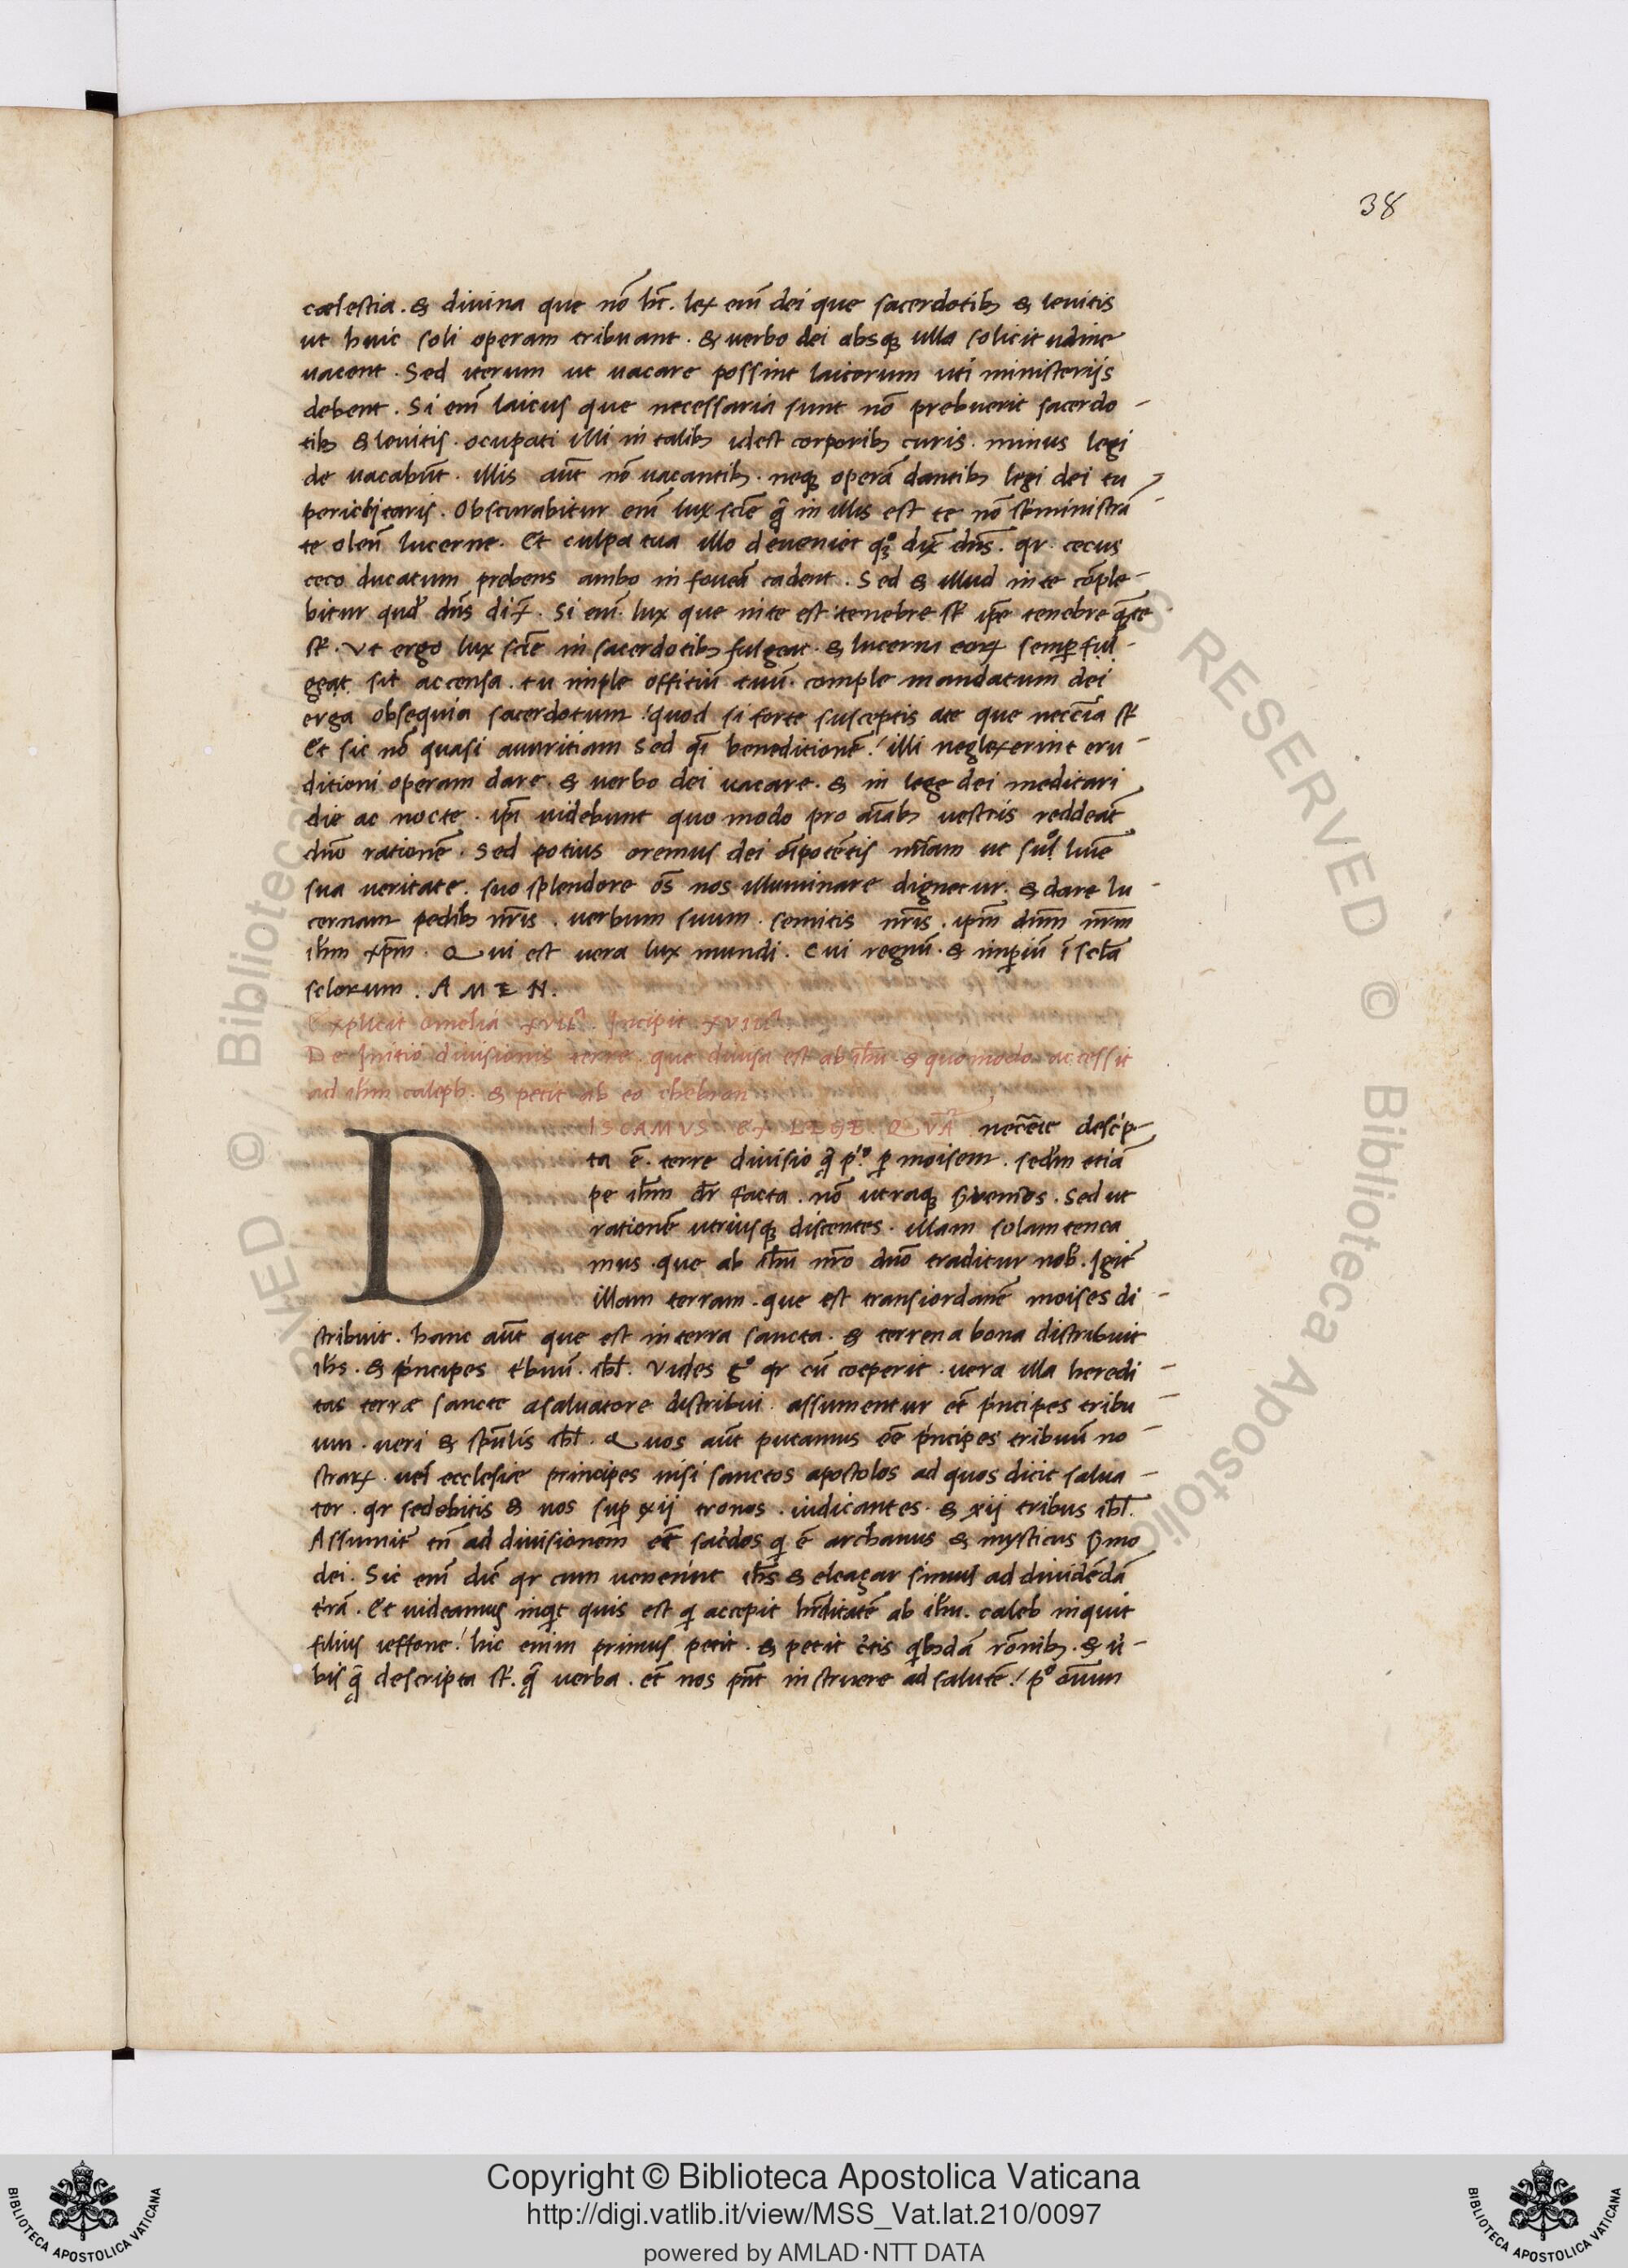 38
cælestia. & diuina que nõ hñt. lex eni͂ dei que sacerdotib; & leuitis
ut huic soli operam tribuant. & uerbo dei absq; ulla solicitudine
uacent. Sed iterum ut uacare possint laicorum uti ministerijs
debent. Si eni͂ laicus que necessaria sunt nõ prebuerit sacerdo-
tib; & leuitis. ocupati illi in talib; idest corporib; curis. minus legi
de uacabũt. illis aũt nõ uacantib;. neq; operã dantib; legi dei tu
periclitaris. Obscurabitur eni͂ lux scĩe q̃ in illis est te nõ s̃bministrã
te oleũ lucerne. Et culpa tua illo deueniet qͦ dix̃ dñs. qr cecus
ceco ducatum prebens ambo in foueã cadent. Sed & illud in te cõple-
bitur qud̃ dñs dix̃. Si eni͂ lux que in te est tenebre sṫ ip̃e tenebre q̃te
sṫ. Vt ergo lux scĩe in sacerdotib; fulgeat. & lucerna eoꝝ semper ful-
geat sit accensa. tu imple offitiũ tuũ. comple mandatum dei
erga obsequia sacerdotum! quod si forte susceptis ate que necc̃ia sṫ
Et sic nõ quasi auaritiam sed q̃i beneditionẽ! illi neglexerint eru-
ditioni operam dare. & uerbo dei uacare. & in lege dei meditari
die ac nocte. ip̃i uidebunt quo modo pro aĩab; uestris reddeãt
dño rationẽ. Sed potius oremus dei oĩpotẽtis mĩam ut suͦ luĩe
sua ueritate. suo splendore oẽs nos illuminare dignetur. & dare lu-
cernam pedib; nr̃is. uerbum suum. semitis nr̃is. ip̃m dñm nr̃m
ih̃m xp̃m. Qui est uera lux mundi. Cui regnũ. & imperiũ ĩ scl̃a
sclorum. AMEN.
Explicit omelia xviiª. Incipit xviiiª.
De Initio diuisionis terre. que diuisa est ab ih̃u. & quomodo accessit
ad ih̃m caleph. & petit ab eo chebron
DISCAMVS EX LEGE. QVÃ necc̃e descp-
ta ẽ. terre diuisio q̃ p̃ͦ. ꝑ moisem. sedm etiã
pe ih̃m dr̃ facta. nõ utraq; ẜuemos. Sed ut
rationẽ utriusq; discentes. illam solam tenea
mus. que ab ih̃u nr̃o dño traditur nob̃. Igit̃
illam terram. que est transiordanẽ moises di-
stribuit. hanc aũt que est in terra sancta. & terrena bona distribuit
ih̃s. & p̃ncipes t̃buũ. ish̃l. Vides gͦ qr cũ coeperit. uera illa heredi-
tas terræ sancte asaluatore distribui. assumentur et̃ p̃ncipes tribu-
um. ueri & sp̃ulis ish̃l. Quos aũt putamus eẽ p̃ncipes tribuũ no-
straꝝ. uel ecclesiæ principes nisi sanctos apostolos ad quos dicit salua-
tor. qr sedebitis & uos suꝑ xij tronos. iudicantes. & xij tribus ish̃l.
Assumit̃ tñ ad diuisionem et̃ sac̃dos q ẽ archanus & mysticus ẜmo
dei. Sic eni͂ dic̃ qr cum uenerint ih̃s & eleazar simul ad diuidẽdã
t̃rã. Et uideamus inqt quis est q accepit h̃ditatẽ ab ih̃u. caleb inquit
filius ieffone! hic enim primus petit. & petit c̃tis qbsdã rõnib;. & u̇-
bis q̃ descripta sṫ. q̃ uerba. et̃ nos pñt instruere ad salutẽ! pͦ oĩum
Copyright © Biblioteca Apostolica Vaticana
http://digi.vatlib.it/view/MSS_Vat.lat.210/0097
powered by AMLAD·NTT DATA